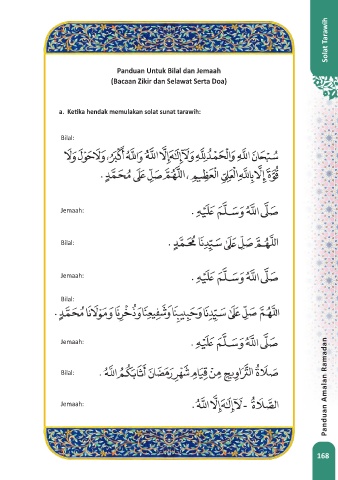 Solat Tarawih
Panduan Untuk Bilal dan Jemaah
(Bacaan Zikir dan Selawat Serta Doa)
a. Ketika hendak memulakan solat sunat tarawih:
Bilal:
سُبْحَانَ اللهِ وَالْحَمْدُ لِلَّهِ وَلَآ إِلَهَ إِلَّا اللهُ وَاللهُ أَكْبَرُ، وَلَا حَوْلَ وَلَا
قُوَّةَ إِلَّا بِاللهِ الْعَلِيِّ الْعَظِيمِ، اللَّهُمَّ صَلِّ عَلَى مُحَمَّدٍ.
Jemaah:
صَلَّى اللهُ وَسَلَّمَ عَلَيْهِ.
Bilal:
اللَّهُمَّ صَلِّ عَلَى سَيِّدِنَا مُحَمَّدٍ.
Jemaah:
صَلَّى اللهُ وَسَلَّمَ عَلَيْهِ.
Bilal:
اللَّهُمَّ صَلِّ عَلَى سَيِّدِنَا وَحَبِيبِنَا وَشَفِيعِنَا وَذُخْرِنَا وَمَوْلَانَا مُحَمَّدٍ.
Jemaah:
صَلَّى اللهُ وَسَلَّمَ عَلَيْهِ.
Bilal:
صَلَاةُ التَّرَاوِيحِ مِنْ قِيَامِ شَهْرِ رَمَضَانَ أَثَابَكُمُ اللهُ.
Jemaah:
الصَّلَاةُ - لَآ إِلَهَ إِلَّا اللهُ.
Panduan Amalan Ramadan
168